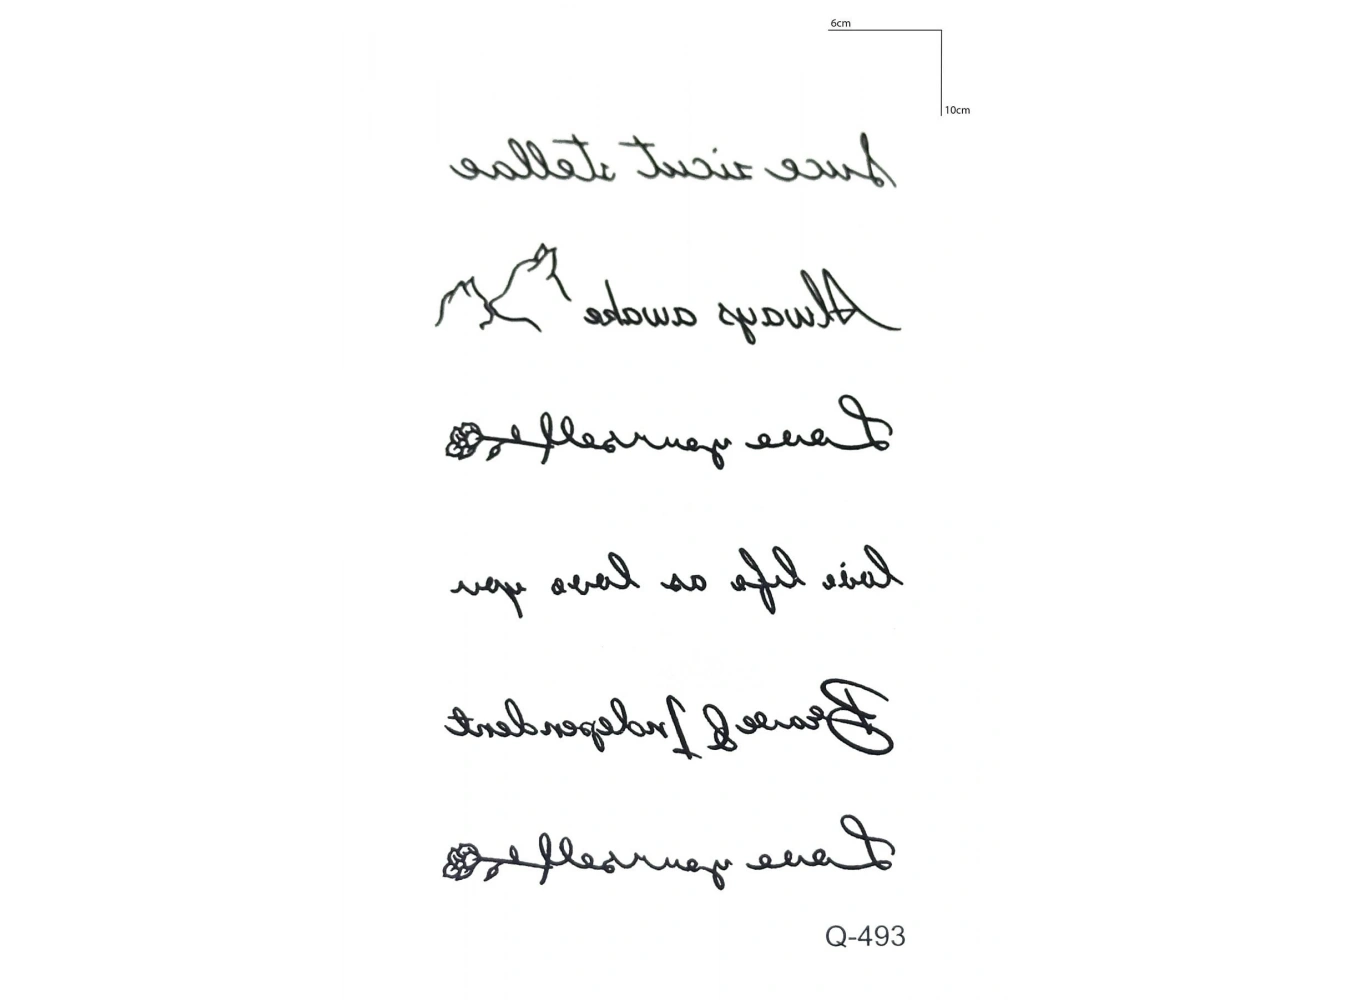 6cm
10cm
Luce sicut stellae
Always awake
Love yourself
love life as love you
Brave & Independent
Love yourself
Q-493